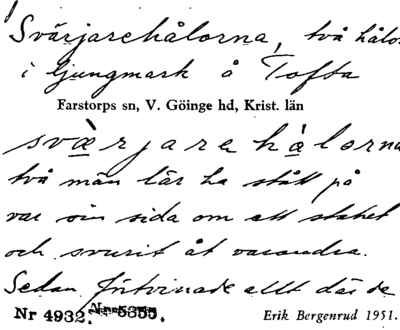 Svärjarehålorna, två hålor
i ljungmark å Tofta
Farstorps sn, V. Göinge hd, Krist. län
svæ̀rjarehålorna
två män lär ha stått på
var sin sida om ett staket
och svurit åt varandra.
Sedan förtvinade allt där de
Nr 4932. Nr 5355. Erik Bergenrud 1951.